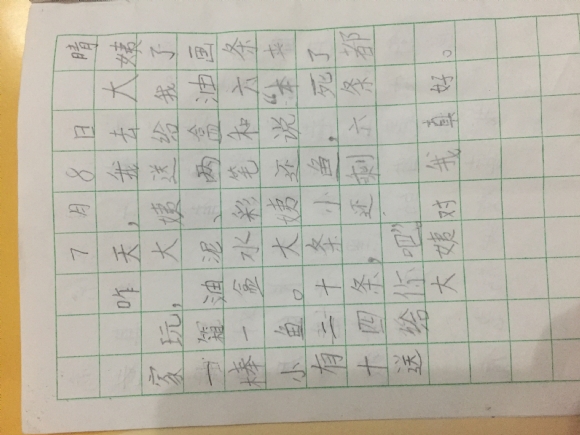 7月8日 晴
昨天,我去大姨
家玩,大姨送给我了
一油泥、两盒油画
棒一盒水彩笔和六条
小鱼。大姨还说“本来
有二十条小鱼,死了
十四条,还剩六条都
送给你吧”
大姨对我真好。